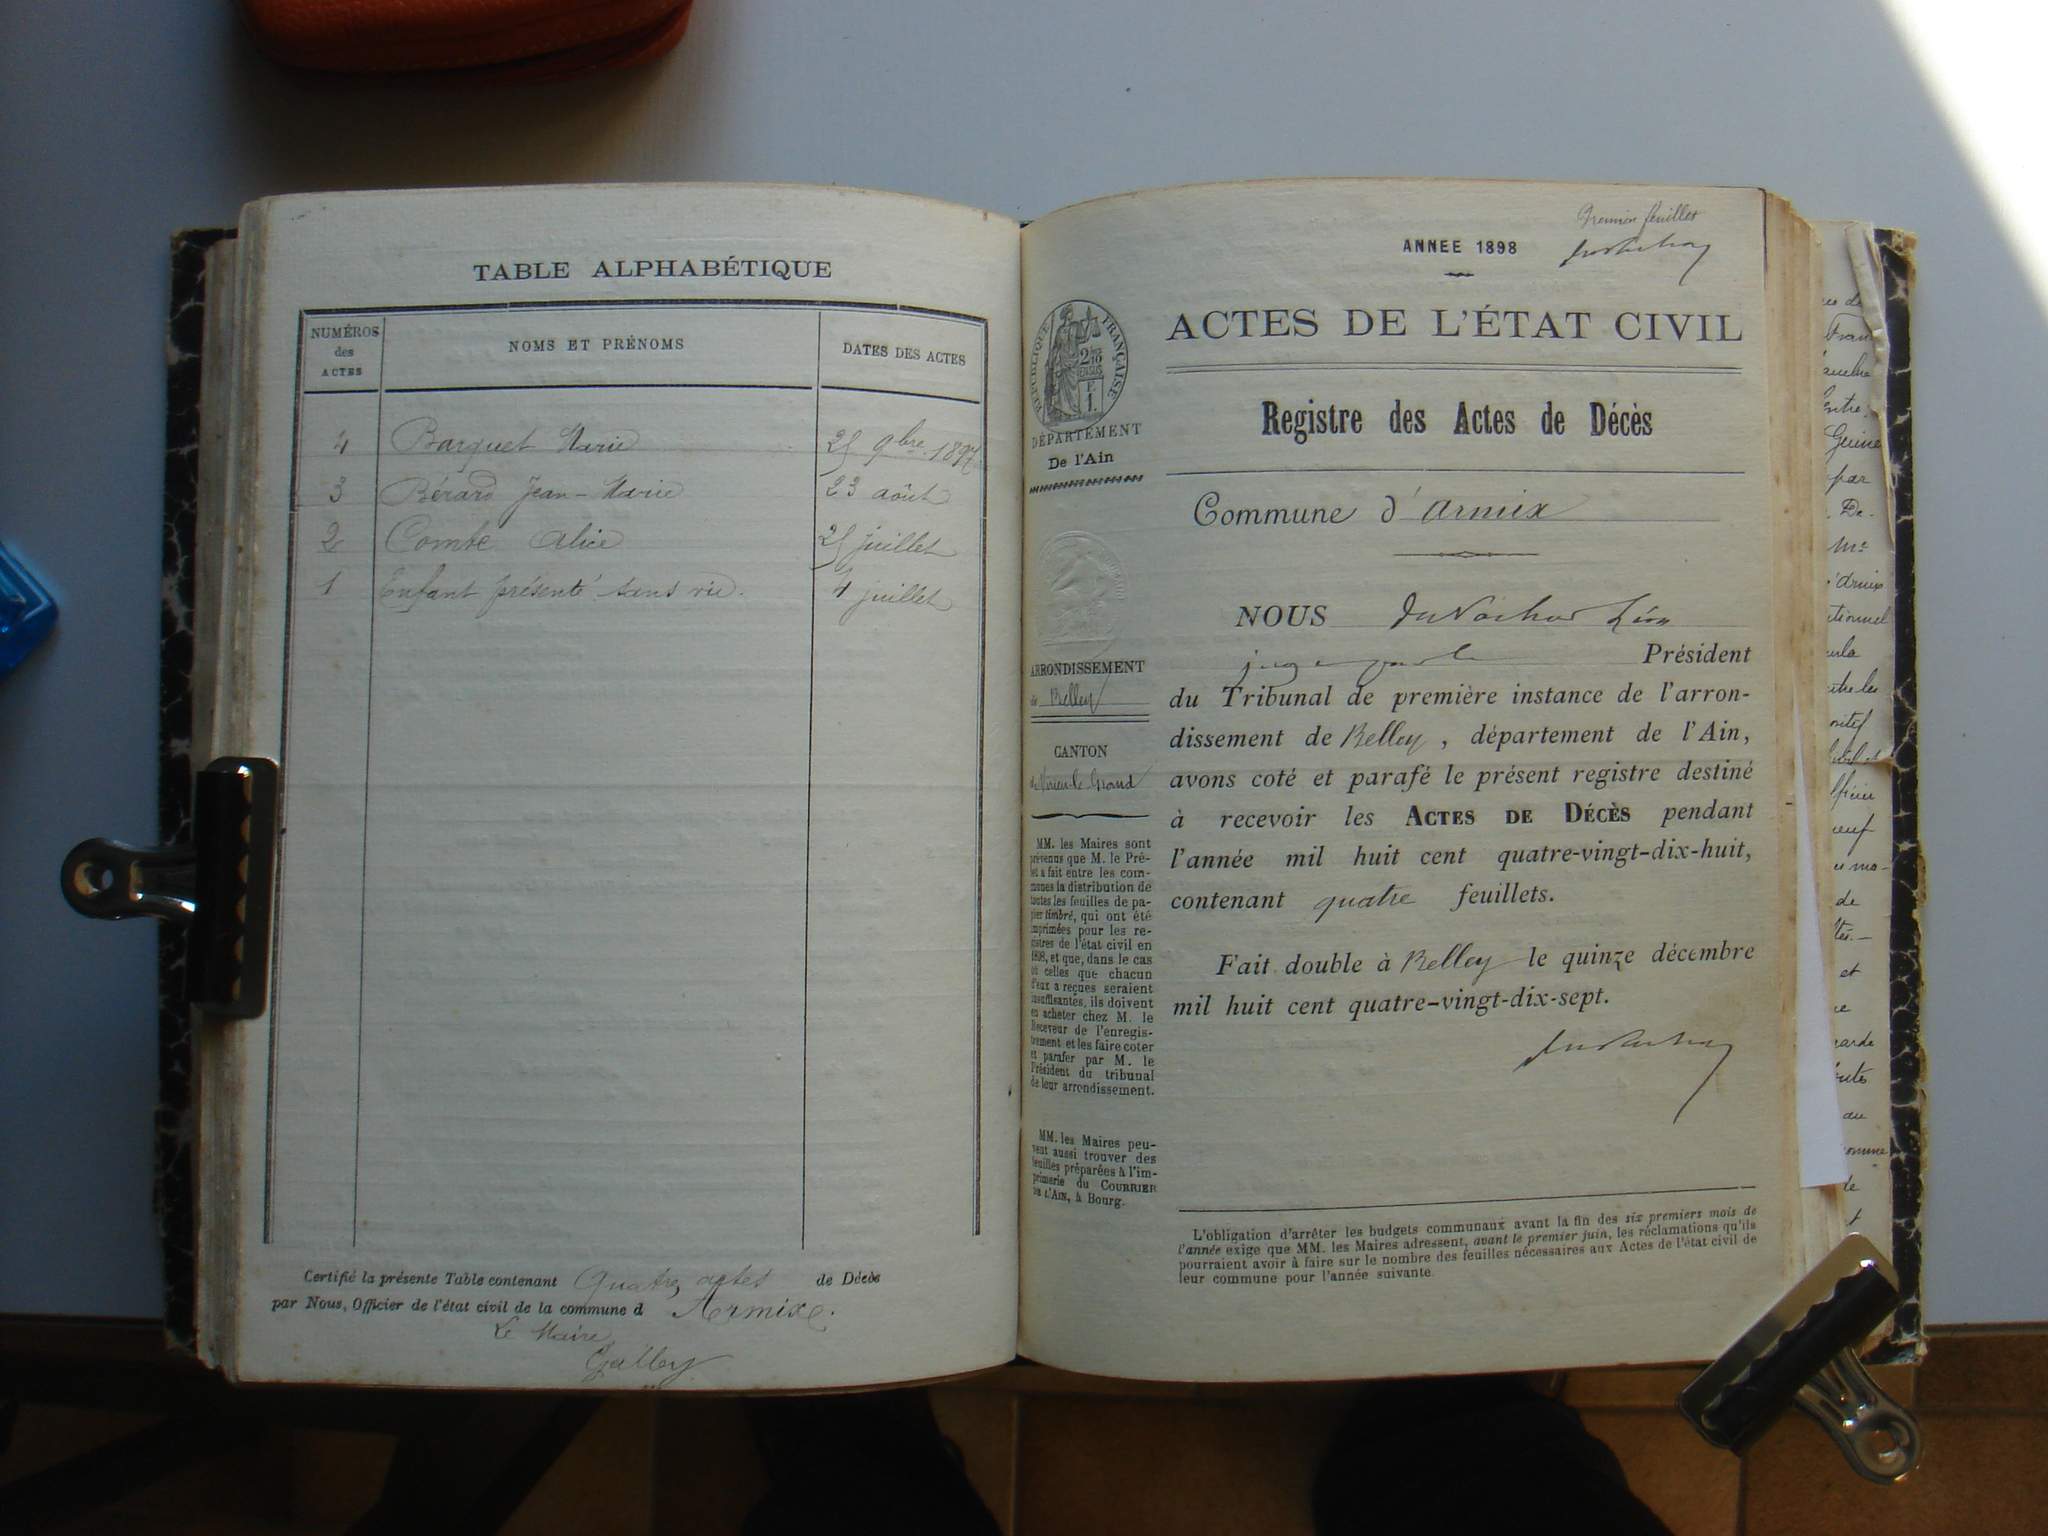 TABLE ALPHABÉTIQUE
NUMÉROS
des
ACTES
NOMS ET PRÉNOMS
DATES DES ACTES
4 Barquet Marie 25 9bre 1897
3 Bérard Jean-Marie 23 août
2 Combe Alice 25 juillet
1 Enfant présenté sans vie. 4 juillet
Certifié la présente Table contenant Quatre actes de Décès
par Nous, Officier de l'état civil de la commune d Armix.
Le Maire
Galley
Premier feuillet
ANNEE 1898
RÉPUBLIQUE FRANÇAISE
DÉPARTEMENT
De l'Ain
ARRONDISSEMENT
de Belley
CANTON
de Virieu-le-Grand
MM. les Maires sont
prévenus que M. le Pré-
fet a fait entre les com-
munes la distribution de
toutes les feuilles de pa-
pier timbré, qui ont été
imprimées pour les re-
gistres de l'état civil en
1898, et que, dans le cas
où celles que chacun
d'eux a reçues seraient
insuffisantes, ils doivent
en acheter chez M. le
Receveur de l'enregis-
trement et les faire coter
et parafer par M. le
Président du tribunal
de leur arrondissement.
MM. les Maires peu-
vent aussi trouver des
feuilles préparées à l'im-
primerie du COURRIER
DE L'AIN, à Bourg.
ACTES DE L'ÉTAT CIVIL
Registre des Actes de Décès
Commune d'Armix
NOUS Léon
Président
du Tribunal de première instance de l'arron-
dissement de Belley, département de l'Ain,
avons coté et parafé le présent registre destiné
à recevoir les ACTES DE DÉCÈS pendant
l'année mil huit cent quatre-vingt-dix-huit,
contenant quatre feuillets.
Fait double à Belley le quinze décembre
mil huit cent quatre-vingt-dix-sept.
L'obligation d'arrêter les budgets communaux avant la fin des six premiers mois de
l'année exige que MM. les Maires adressent, avant le premier juin, les réclamations qu'ils
pourraient avoir à faire sur le nombre des feuilles nécessaires aux Actes de l'état civil de
leur commune pour l'année suivante.